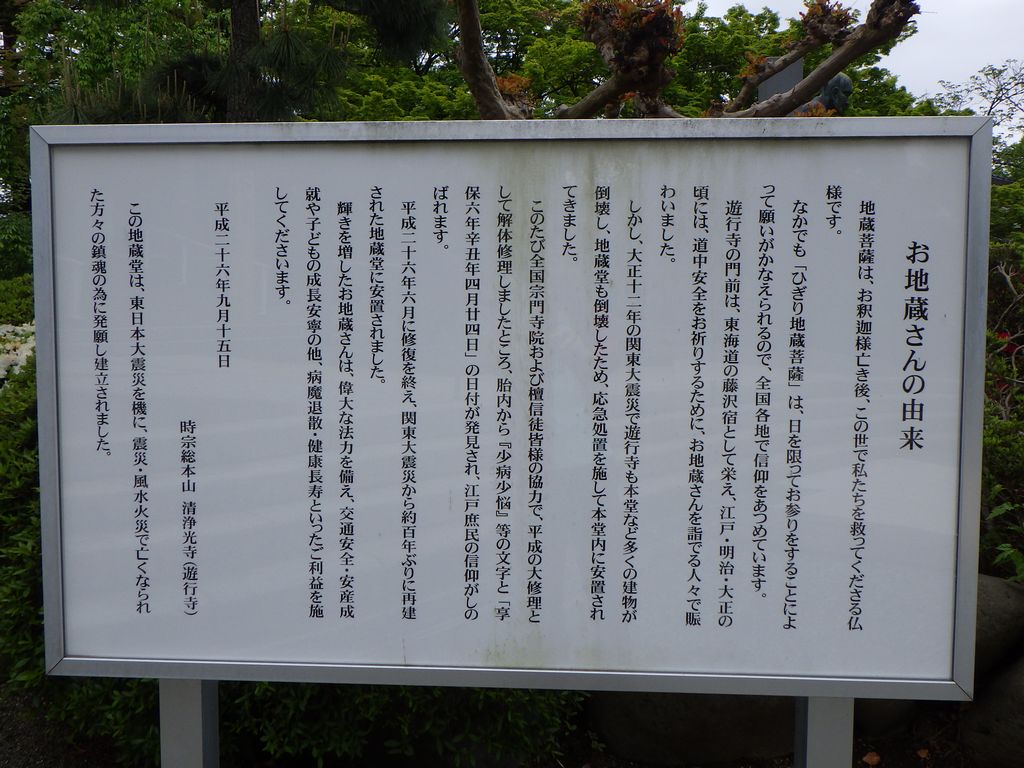 お地蔵さんの由来
地蔵菩薩は、お釈迦様亡き後、この世で私たちを救ってくださる仏
様です。
なかでも「ひぎり地蔵菩薩」は、日を限ってお参りをすることによ
って願いがかなえられるので、全国各地で信仰をあつめています。
遊行寺の門前は、東海道の藤沢宿として栄え、江戸・明治・大正の
頃には、道中安全をお祈りするために、お地蔵さんを詣でる人々で賑
わいました。
しかし、大正十二年の関東大震災で遊行寺も本堂など多くの建物が
倒壊し、地蔵堂も倒壊したため、応急処置を施して本堂内に安置され
てきました。
このたび全国宗門寺院および檀信徒皆様の協力で、平成の大修理と
して解体修理しましたところ、胎内から『少病少悩』等の文字と「享
保六年辛丑年四月廿四日」の日付が発見され、江戸庶民の信仰がしの
ばれます。
平成二十六年六月に修復を終え、関東大震災から約百年ぶりに再建
された地蔵堂に安置されました。
輝きを増したお地蔵さんは、偉大な法力を備え、交通安全・安産成
就や子どもの成長安寧の他、病魔退散・健康長寿といったご利益を施
してくださいます。
平成二十六年九月十五日
時宗総本山 清浄光寺（遊行寺）
この地蔵堂は、東日本大震災を機に、震災・風水火災で亡くなられ
た方々の鎮魂の為に発願し建立されました。